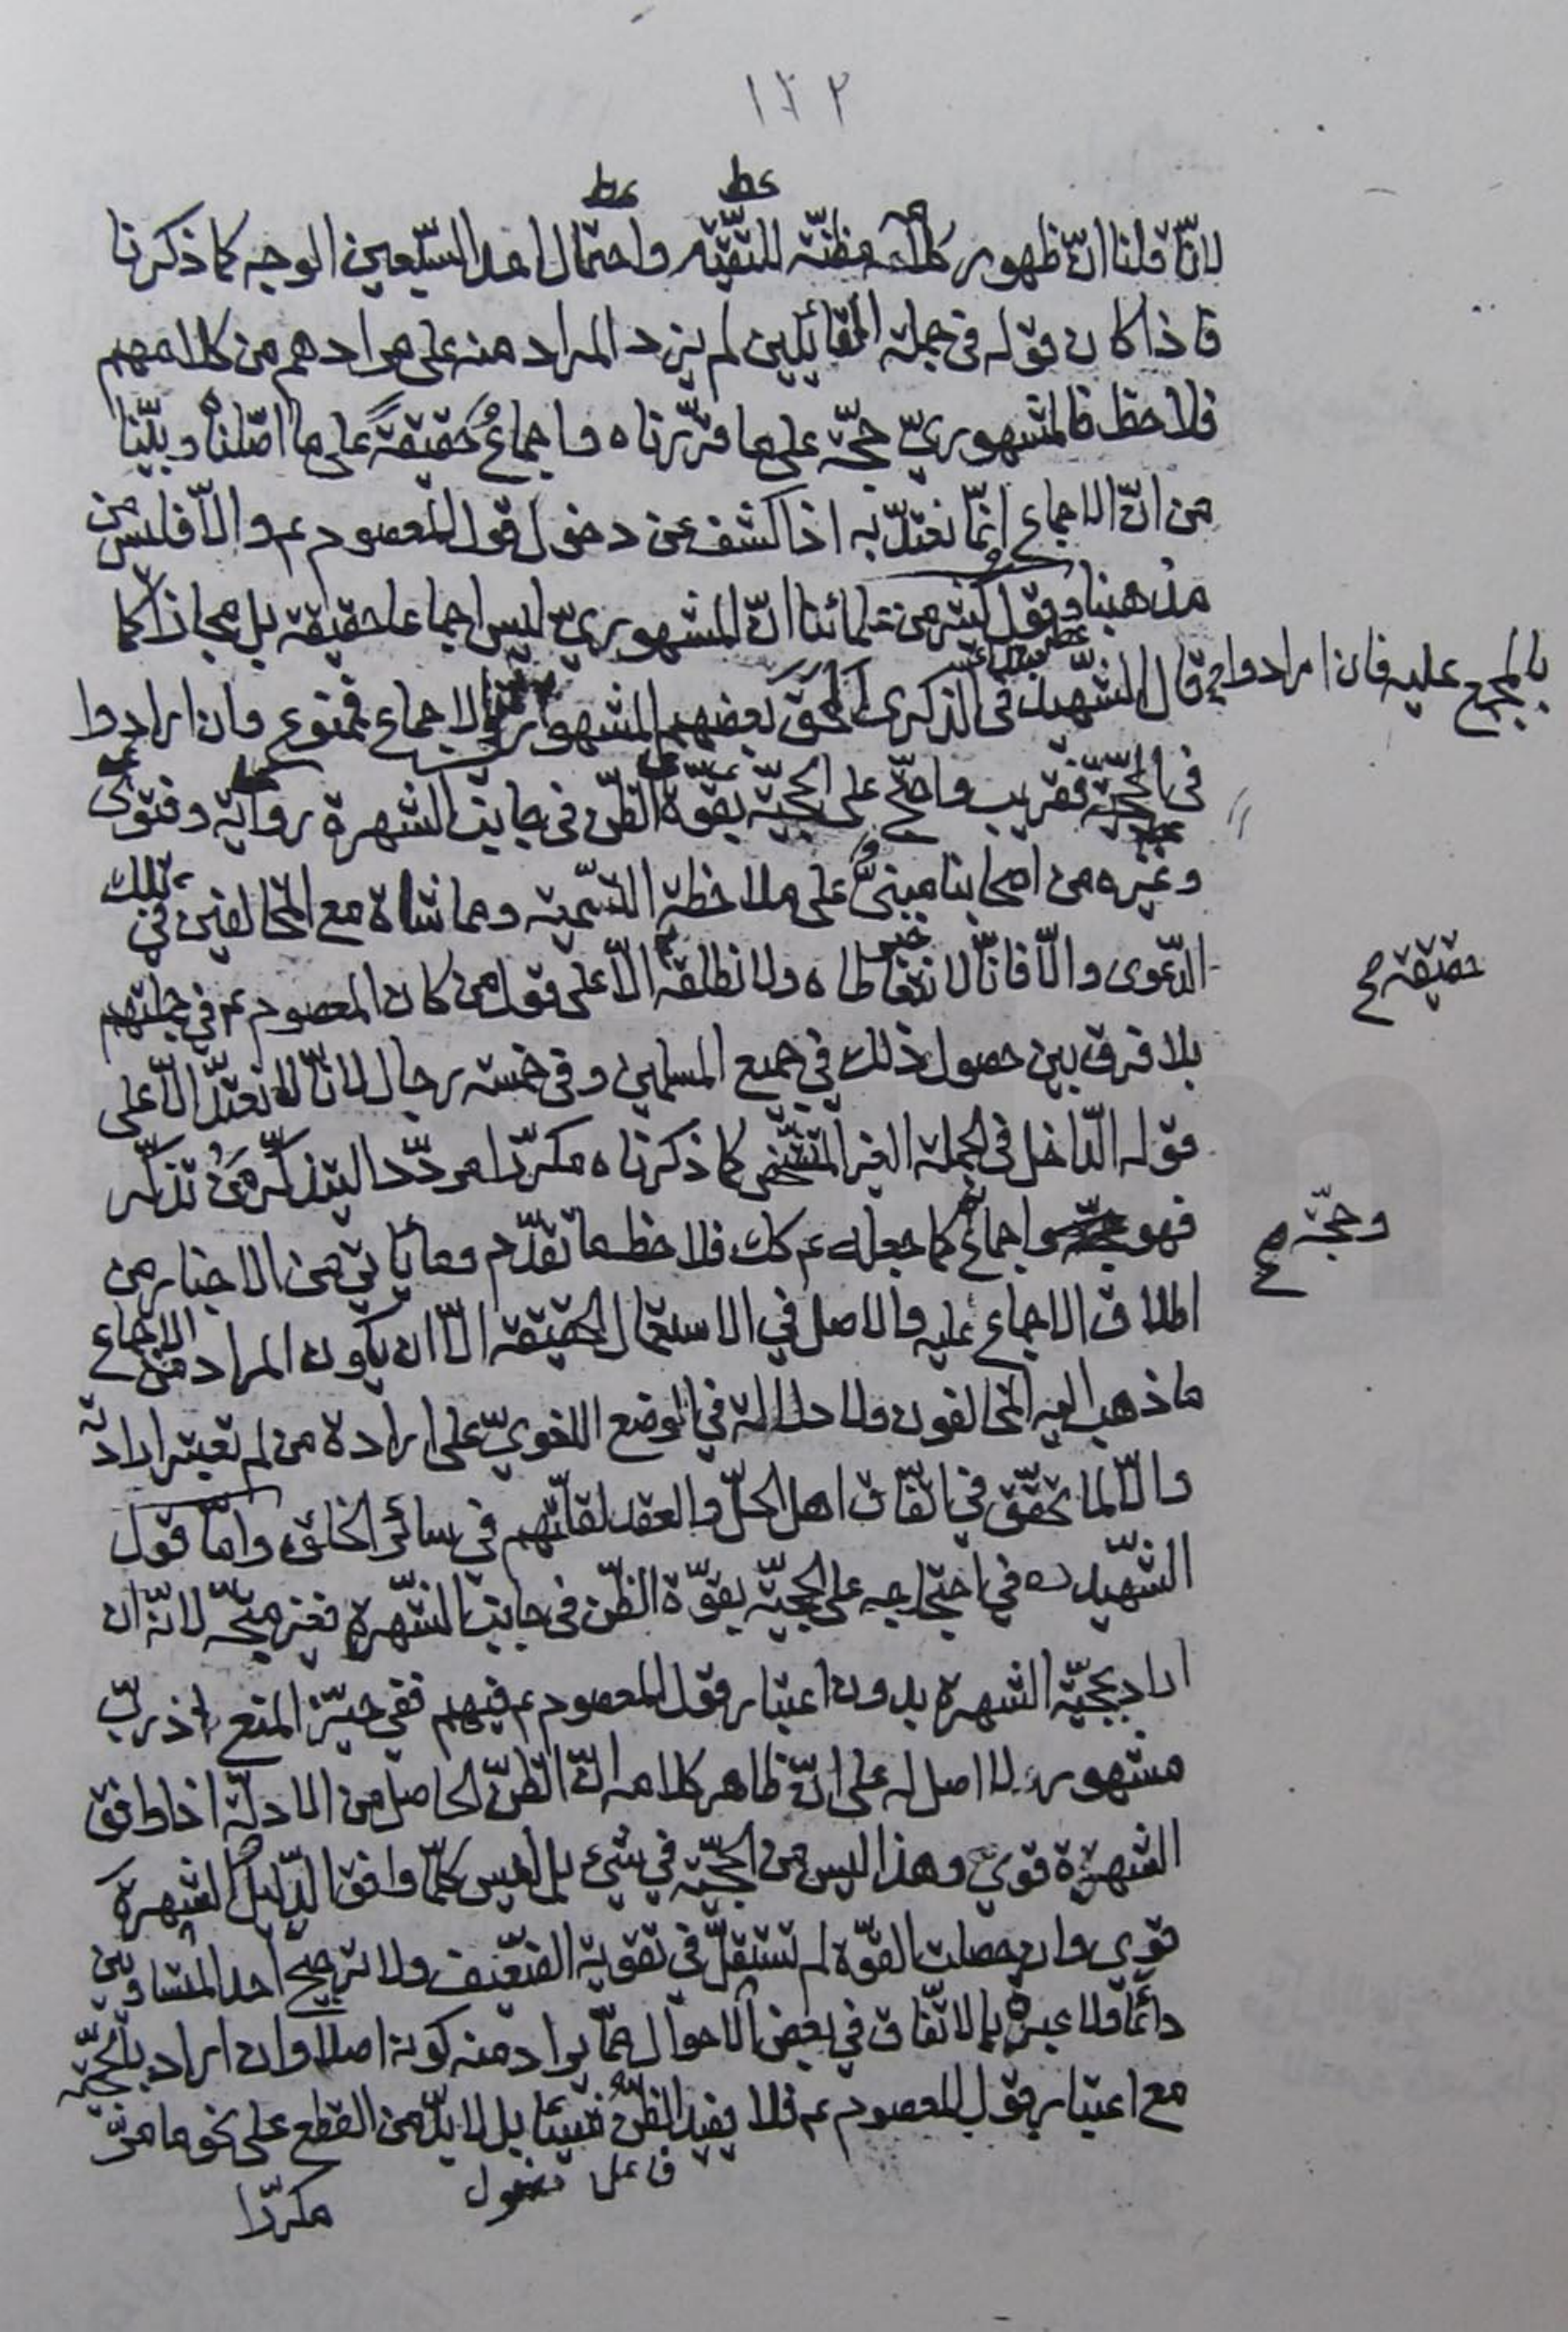 ١٢٢
لانّا قلنا انّ ظهور كلامه مظنّة للتقيّه واحتمال احد السّبعين الوجه كما ذكرنا
فاذا كان قوله في جملة القائلين لم يزد المراد منه على مرادهم من كلامهم
فلاحظ فالمشهوريّ حجّة على ما قرّرناه واجماعٌ حقيقةً على ما اصّلناه وبيّنا
من انّ الاجماع انّما نعتدّ به اذا كشف عن دخول قول المعصوم ع والّا فليس من
مذهبنا وقول كثير من علمائنا انّ المشهوريّ ليس اجماعا حقيقة بل مجازا كما
قال الشّهيد في الذكرى الحق بعضهم المشهور بالمجمع عليه فان ارادوا في الاجماع فممنوع وان ارادوا
في الحجيّة فقريب واحتجّ على الحجيّة بقوّة الظنّ في جانب الشهرة رواية وفتوى
وغيره من اصحابنا مبنيٌّ على ملاحظة التسمية ومماشاة مع المخالفين في تلك
الدّعوى والّا فانّا لا نتعاطاه ولا نطلقه الّا على قول من كان المعصوم ع في جملتهم
حقيقة صح
بلا فرق بين حصول ذلك في جميع المسلمين وفي خمسة رجال لانّا لا نعتدّ الّا على
قوله الدّاخل في الجملة الغير المتشخّص كما ذكرناه مكرّرا مردّدا ليتذكّر مَن تذكّر
فهو اجماع كما جعله ع كك فلاحظ ما تقدّم وما يأتي من الاخبار من
وحجّة صح
اطلاق الاجماع عليه والاصل في الاستعمال الحقيقة الّا ان يكون المراد من الاجماع
ما ذهب اليه المخالفون ولا دلالة في الوضع اللغويّ على ارادة من لم تعتبر ارادته
والّا لما تحقّق في اتّفاق اهل الحلّ والعقد لقلّتهم في سائر الخلق وامّا قول
الشّهيد ره في احتجاجه على الحجيّة بقوّة الظّن في جانب الشّهرة فغير متّجه لانّه ان
اراد بحجيّة الشهرة بدون اعتبار قول المعصوم ع فيهم ففي حيّز المنع اذ ربّ
مشهور لا اصل له على انّ ظاهر كلامه انّ الظنّ الحاصل من الادلّة اذا وافق
الشهرة قوي وهذا ليس من الحجيّة في شيء بل ليس كلّما وافق الدّليل الشهرة
قوي وان حصلت القوّة لم تستقلّ في تقوية الضّعيف ولا ترجيح احد المتساويين
دائما فلا عبرة بالاتّفاق في بعض الاحوال عمّا يراد منه كونه اصلا وان اراد بالحجيّة
مع اعتبار قول المعصوم ع فلا يفيد الظنّ شيئا بل لا بدّ من القطع على نحو ما مرّ
فاعل مفعول
مكرّرا